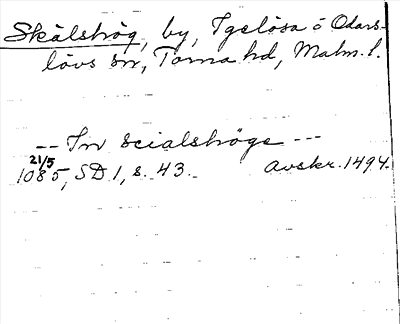 Skälshög, by, Igelösa o Odars-
lövs sn, Torna hd, Malm. l.
-- In scialshöge ---
21/5
1085, SD 1, s. 43. Avskr. 1494.